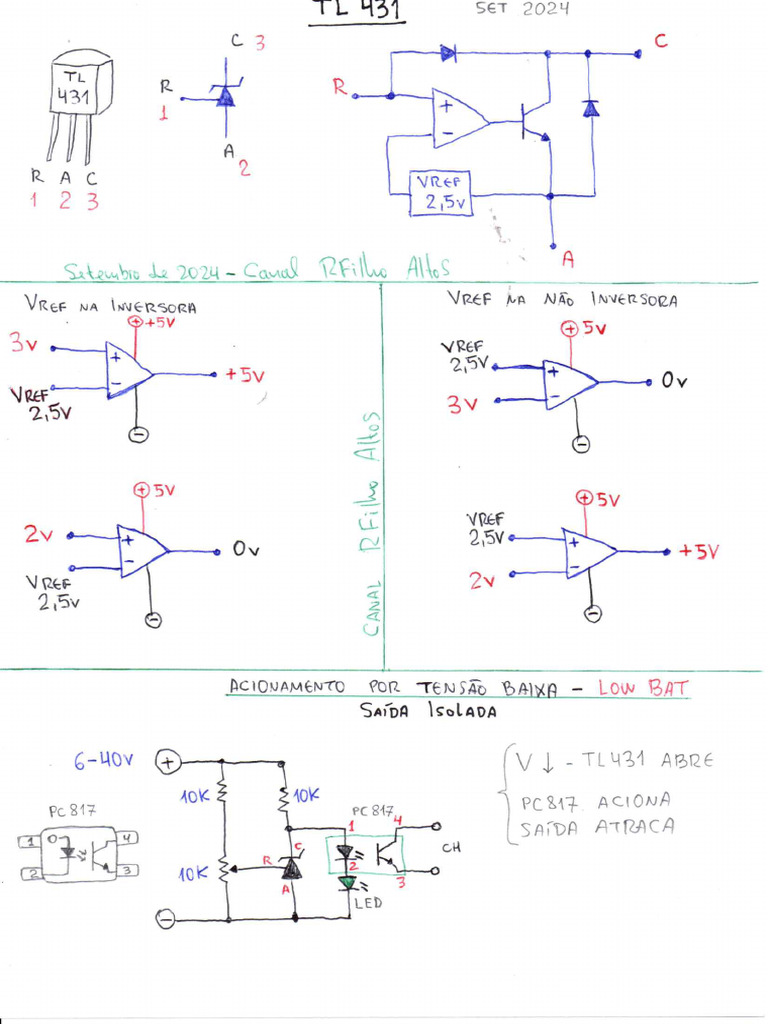 TL 431
SET 2024
TL
431
R A C
1 2 3
C 3
R
1
A
2
R
C
+
-
VREF
2,5v
A
Setembro de 2024 - Canal RFilho Altos
VREF NA INVERSORA
+ +5V
3v
+
-
+5v
VREF
2,5v
-
+ 5V
2v
+
-
0v
VREF
2,5v
-
CANAL RFilho Altos
VREF NA NÃO INVERSORA
+ 5v
VREF
2,5v
+
-
0v
3v
-
+ 5V
VREF
2,5v
+
-
+5V
2v
-
ACIONAMENTO POR TENSÃO BAIXA - LOW BAT
SAÍDA ISOLADA
6-40v
+
10K
10K
10K
R
C
A
-
PC817
1
2
4
3
CH
LED
PC817
1
2
4
3
V ↓ - TL431 ABRE
PC817 ACIONA
SAÍDA ATRACA